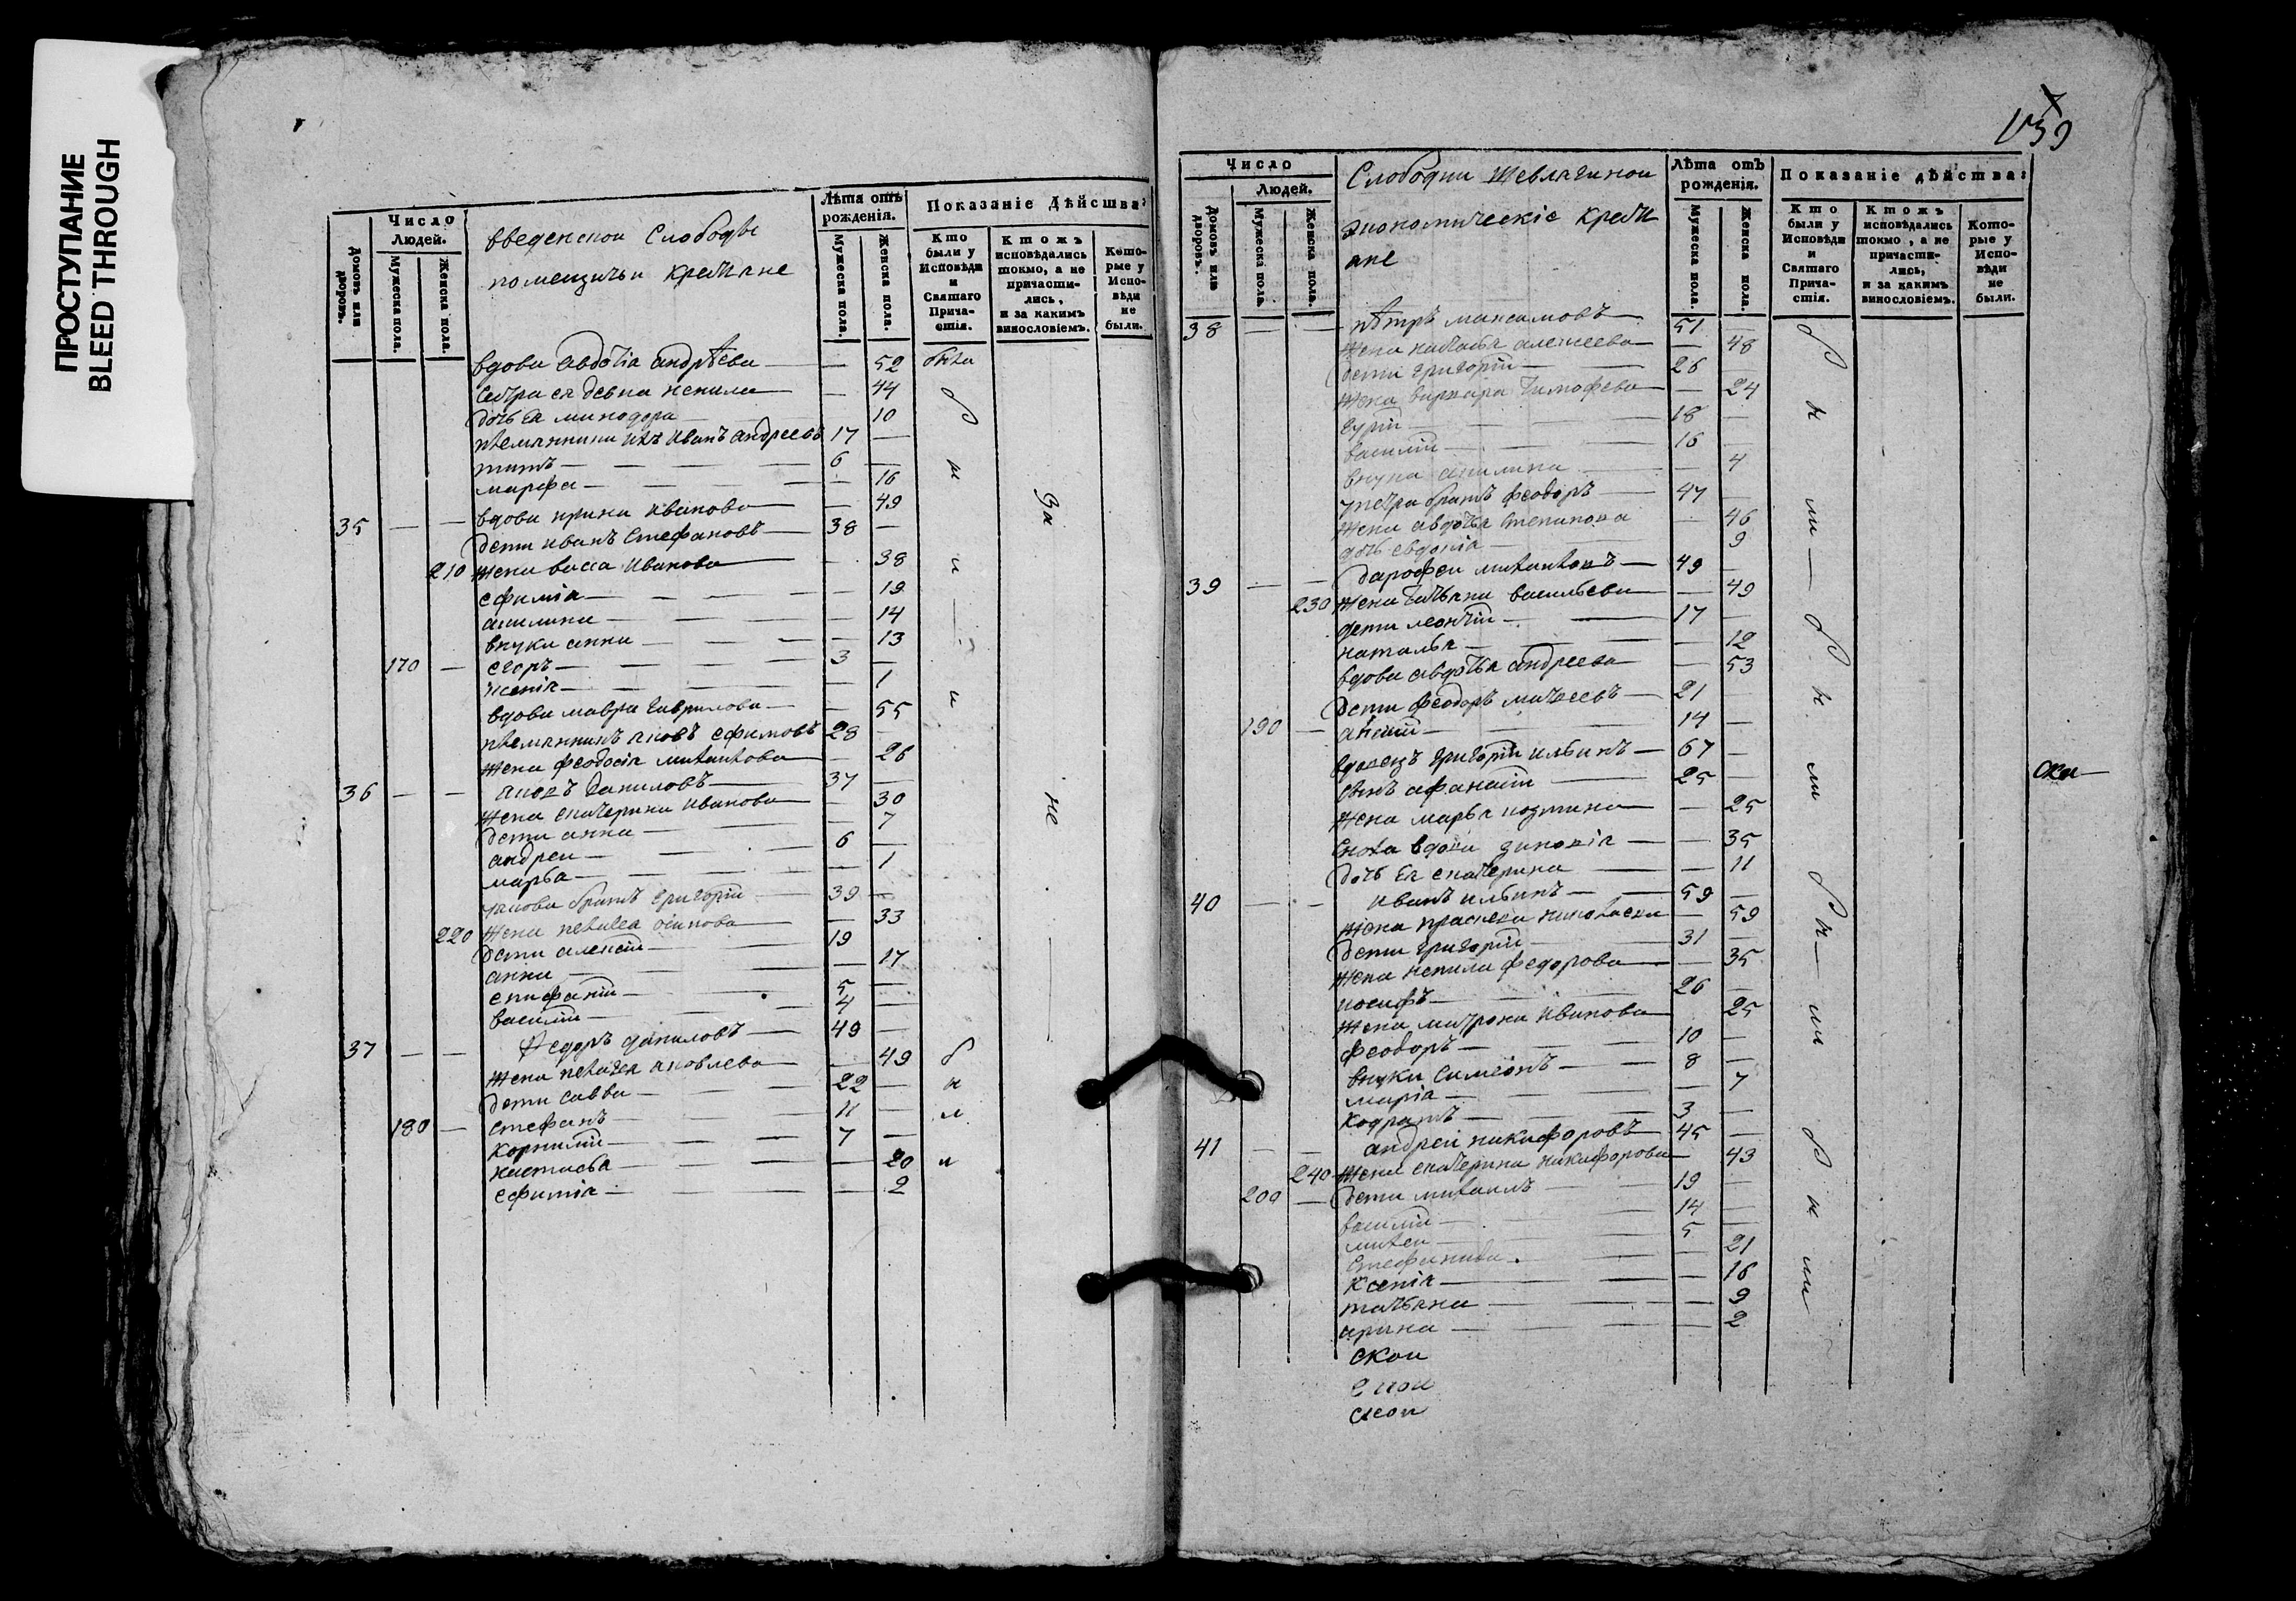 ПРОСТУПАНИЕ
BLEED THROUGH
Число
Людей.
Домовъ или дворовъ.
Мужеска пола.
Женска пола.
введенской Слободы
помещичьи крестьяне
Лѣта отъ рожденія.
Мужеска пола.
Женска пола.
Показаніе дѣйства:
Кто были у Исповѣди и Святаго Прича-стія.
Ктожъ исповѣдались токмо, а не причасти-лись, и за какимъ винословіемъ.
Кото-рые у Испо-вѣди не были.
вдова Авдотіа андрѣева — — 52
Сестра ея девка ненила — 44
дочь Ея минодора — 10
племянники ихъ Иванъ андреевъ 17 —
титъ — — — — 6 —
марфа — — — — — 16
вдова ирина иванова — — 49
35 — — дети иванъ Стефановъ — 38 —
210 жена васса Иванова — — 38
ефиміа — — — — 19
акилина — — — — 14
внуки анна — — — 13
170 — егоръ — — — — 3 —
ксеніа — — — — — 1
вдова мавра Гаврилова — — 55
племянникъ яковъ ефимовъ 28 —
жена феодосіа михаилова — 26
36 — — яковъ даниловъ — 37 —
жена екатерина иванова — 30
дети анна — — — 7
андреи — — — 6 —
марья — — — — 1
у якова братъ григоріи — 39 —
220 жена пелагея осипова — 33
дети алексіи — — 19
анна — — — — 17
епифаніи — — — 5 —
василіи — — — 4 —
37 — — Федоръ даниловъ — 49 —
жена пелагея яковлева — 49
дети савва — — — 22 —
180 — стефанъ — — — 11 —
Корнилій — — — 7 —
настасья — — — — 20
ефиміа — — — — 2
были
за
не
139
Число
Людей.
Домовъ или дворовъ.
Мужеска пола.
Женска пола.
Слободки Шевлягиной
экономическіе крестья
ане
Лѣта отъ рожденія.
Мужеска пола.
Женска пола.
Показаніе дѣйства:
Кто были у Исповѣди и Святаго Прича-стія.
Ктожъ исповѣдались токмо, а не причасти-лись, и за какимъ винословіемъ.
Кото-рые у Испо-вѣди не были.
38 — — пѣтръ максимовъ — 51 —
жена наталья алексеева — — 48
дети григоріи — 26 —
жена варвара тимофева — — 24
гуріи — — — 18 —
василіи — — — 16 —
внука акилина — — 4
у петра братъ феодоръ — 47 —
жена авдотья степанова — 46
дочь евдокіа — 9
39 — — дорофеи михаиловъ — 49 —
230 жена татьяна васильева — 49
дети леонтіи — — 17 —
наталья — — — 12
вдова авдотья андреева — 53
дети феодоръ матвеевъ — 21 —
190 — — — 14 —
вдовецъ григоріи ильинъ — 67 —
сынъ афанасіи — 25 —
жена марья козмина — — 25
Сноха вдова зиновіа — — 35
дочь Ея екатерина — — 11
40 — — иванъ ильинъ — — 59 —
жена прасковья николаева — 59
дети григоріи — 31 —
жена ненила федорова — — 35
иосифъ — — 26 —
жена матрона иванова 25
феодоръ — — — 10 —
внуки симеонъ — — 8 —
маріа — — — 7
Кодратъ — — — 3 —
41 — — андреи никифоровъ — 45 —
240 жена екатерина никифорова — 43
200 — дети михаилъ — — 19 —
василіи — — 14 —
5 —
Стефанида — — 21
Ксеніа — — — 16
татьяна — — — 9
ирина — — — 2
скои
скои
скои
ска—